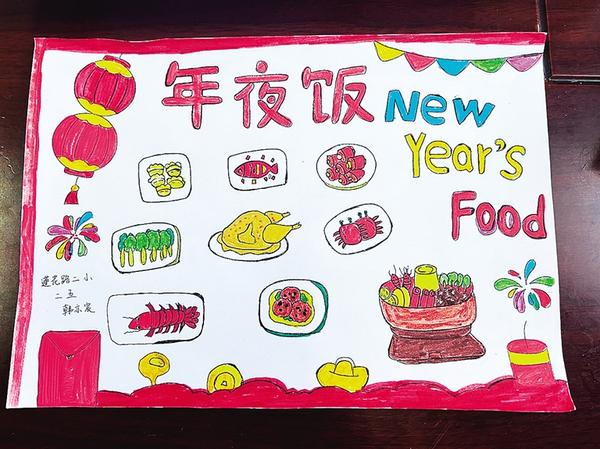 年夜饭
New
Year's
Food
莲花路二小
二五